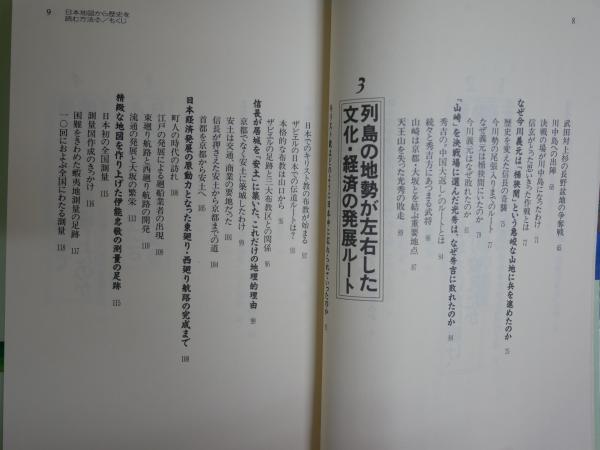 8
武田対上杉の長野盆地の争奪戦 65
川中島への出陣 68
決戦の場が川中島になったわけ
信玄がとった思いきった作戦とは 71
なぜ今川義元は「桶狭間」という急峻な山地に兵を進めたのか 75
歴史を変えた信長の奇襲
今川勢の尾張入りまでのルート 77
なぜ義元は桶狭間にいたのか 77
今川義元はなぜ敗れたのか
「山崎」を決戦場に選んだ光秀は、なぜ秀吉に敗れたのか 84
秀吉の「中国大返し」のルートとは 84
続々と秀吉方にあつまる武将
山崎は京都・大坂を結ぶ重要地点 87
天王山を失った光秀の敗走
3 列島の地勢が左右した
文化・経済の発展ルート
9
日本地図から歴史を
読む方法 もくじ
日本でのキリスト教の布教が始まる 92
ザビエルの日本での伝道ルートは?
本格的な布教は山口から
ザビエルの足跡と三大布教区との関係 95
信長が居城を「安土」に築いた、これだけの地理的理由 98
京都でなく安土に築城したわけ 99
安土は交通、商業の要地だった
信長が押さえた安土から京都までの道 104
首都を京都から安土へ 105
日本経済発展の原動力となった東廻り・西廻り航路の完成まで 108
町人の時代の訪れ 108
江戸の発展による廻船業者の出現
東廻り航路と西廻り航路の開発 109
流通の発展と大坂の繁栄 114
精緻な地図を作り上げた伊能忠敬の測量の足跡 115
日本初の全国測量 115
測量図作成のきっかけ 116
困難をきわめた蝦夷地測量の足跡 117
一〇回におよぶ全国にわたる測量 118